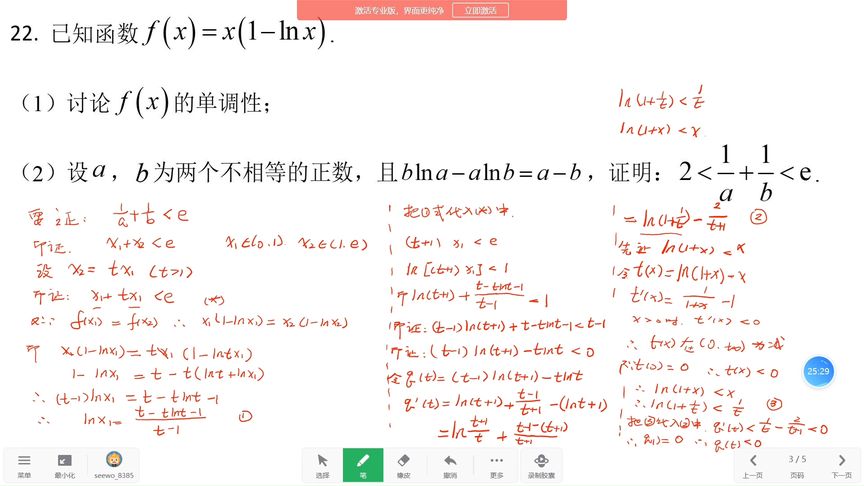 激活专业版，界面更纯净 立即激活
22. 已知函数 f(x)=x(1−ln x).
（1）讨论 f(x) 的单调性；
（2）设 a，b 为两个不相等的正数，且 b ln a − a ln b = a − b，证明：2 < 1/a + 1/b < e.
ln(1+1/t) < 1/t
ln(1+x) < x
要证: 1/a + 1/b < e
即证. x₁+x₂ < e x₁∈(0,1). x₂∈(1,e)
设 x₂ = tx₁ (t>1)
即证: x₁+tx₁ < e (*)
又∵ f(x₁) = f(x₂) ∴ x₁(1-lnx₁) = x₂(1-lnx₂)
即 x₁(1-lnx₁) = tx₁(1-lntx₁)
1-lnx₁ = t-t(lnt+lnx₁)
∴ (t-1)lnx₁ = t-tlnt-1
∴ lnx₁ = (t-tlnt-1)/(t-1) ①
把①式代入(*)中.
(t+1)x₁ < e
ln[(t+1)x₁] < 1
即 ln(t+1) + (t-tlnt-1)/(t-1) = 1
即证: (t-1)ln(t+1)+t-tlnt-1 < t-1
即证: (t-1)ln(t+1)-tlnt < 0
令 g(t) = (t-1)ln(t+1)-tlnt
g'(t) = ln(t+1) + (t-1)/(t+1) - (lnt+1)
= ln (t+1)/t + (t-1-(t+1))/(t+1)
= ln(1+1/t) - 2/(t+1) ②
先证 ln(1+x) < x
令 t(x) = ln(1+x)-x
t'(x) = 1/(1+x) - 1
x>0时. t'(x) < 0
∴ t(x)在(0,+∞)为减
t(0) = 0 ∴ t(x) < 0
∴ ln(1+x) < x
∴ ln(1+1/t) < 1/t ③
把③代入②中. g'(t) < 1/t - 2/(t+1) < 0
∴ g(1) = 0 ∴ g(t) < 0
25:29
菜单 最小化 seewo_8385 选择 笔 橡皮 撤消 更多 录制胶囊 上一页 3 / 5 页码 下一页